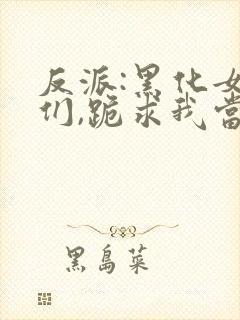 反派:黑化女
们,跪求我當
黑島菜